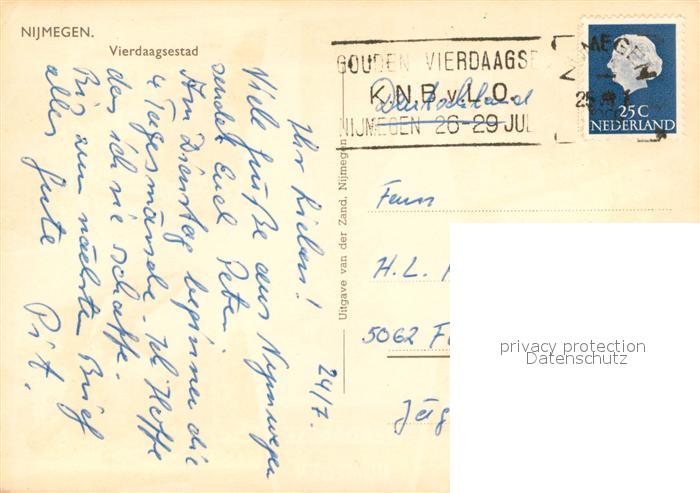 NIJMEGEN.
Vierdaagsestad
GOUDEN VIERDAAGSE
K.N.B.v.L.O.
NIJMEGEN 26-29 JUL
NIJMEGEN
25
25 C
NEDERLAND
Deutschland
24/7.
Ihr Lieben!
Viele Grüße aus Nymwegen
sendet Euch Peter.
Am Dienstag beginnen die
4 Tagesmärsche. Ich hoffe
das ich sie schaffe.
Bis zum nächsten Brief
alles Gute Pit.
Uitgave van der Zand, Nijmegen
H. L.
5062 F
privacy protection
Datenschutz